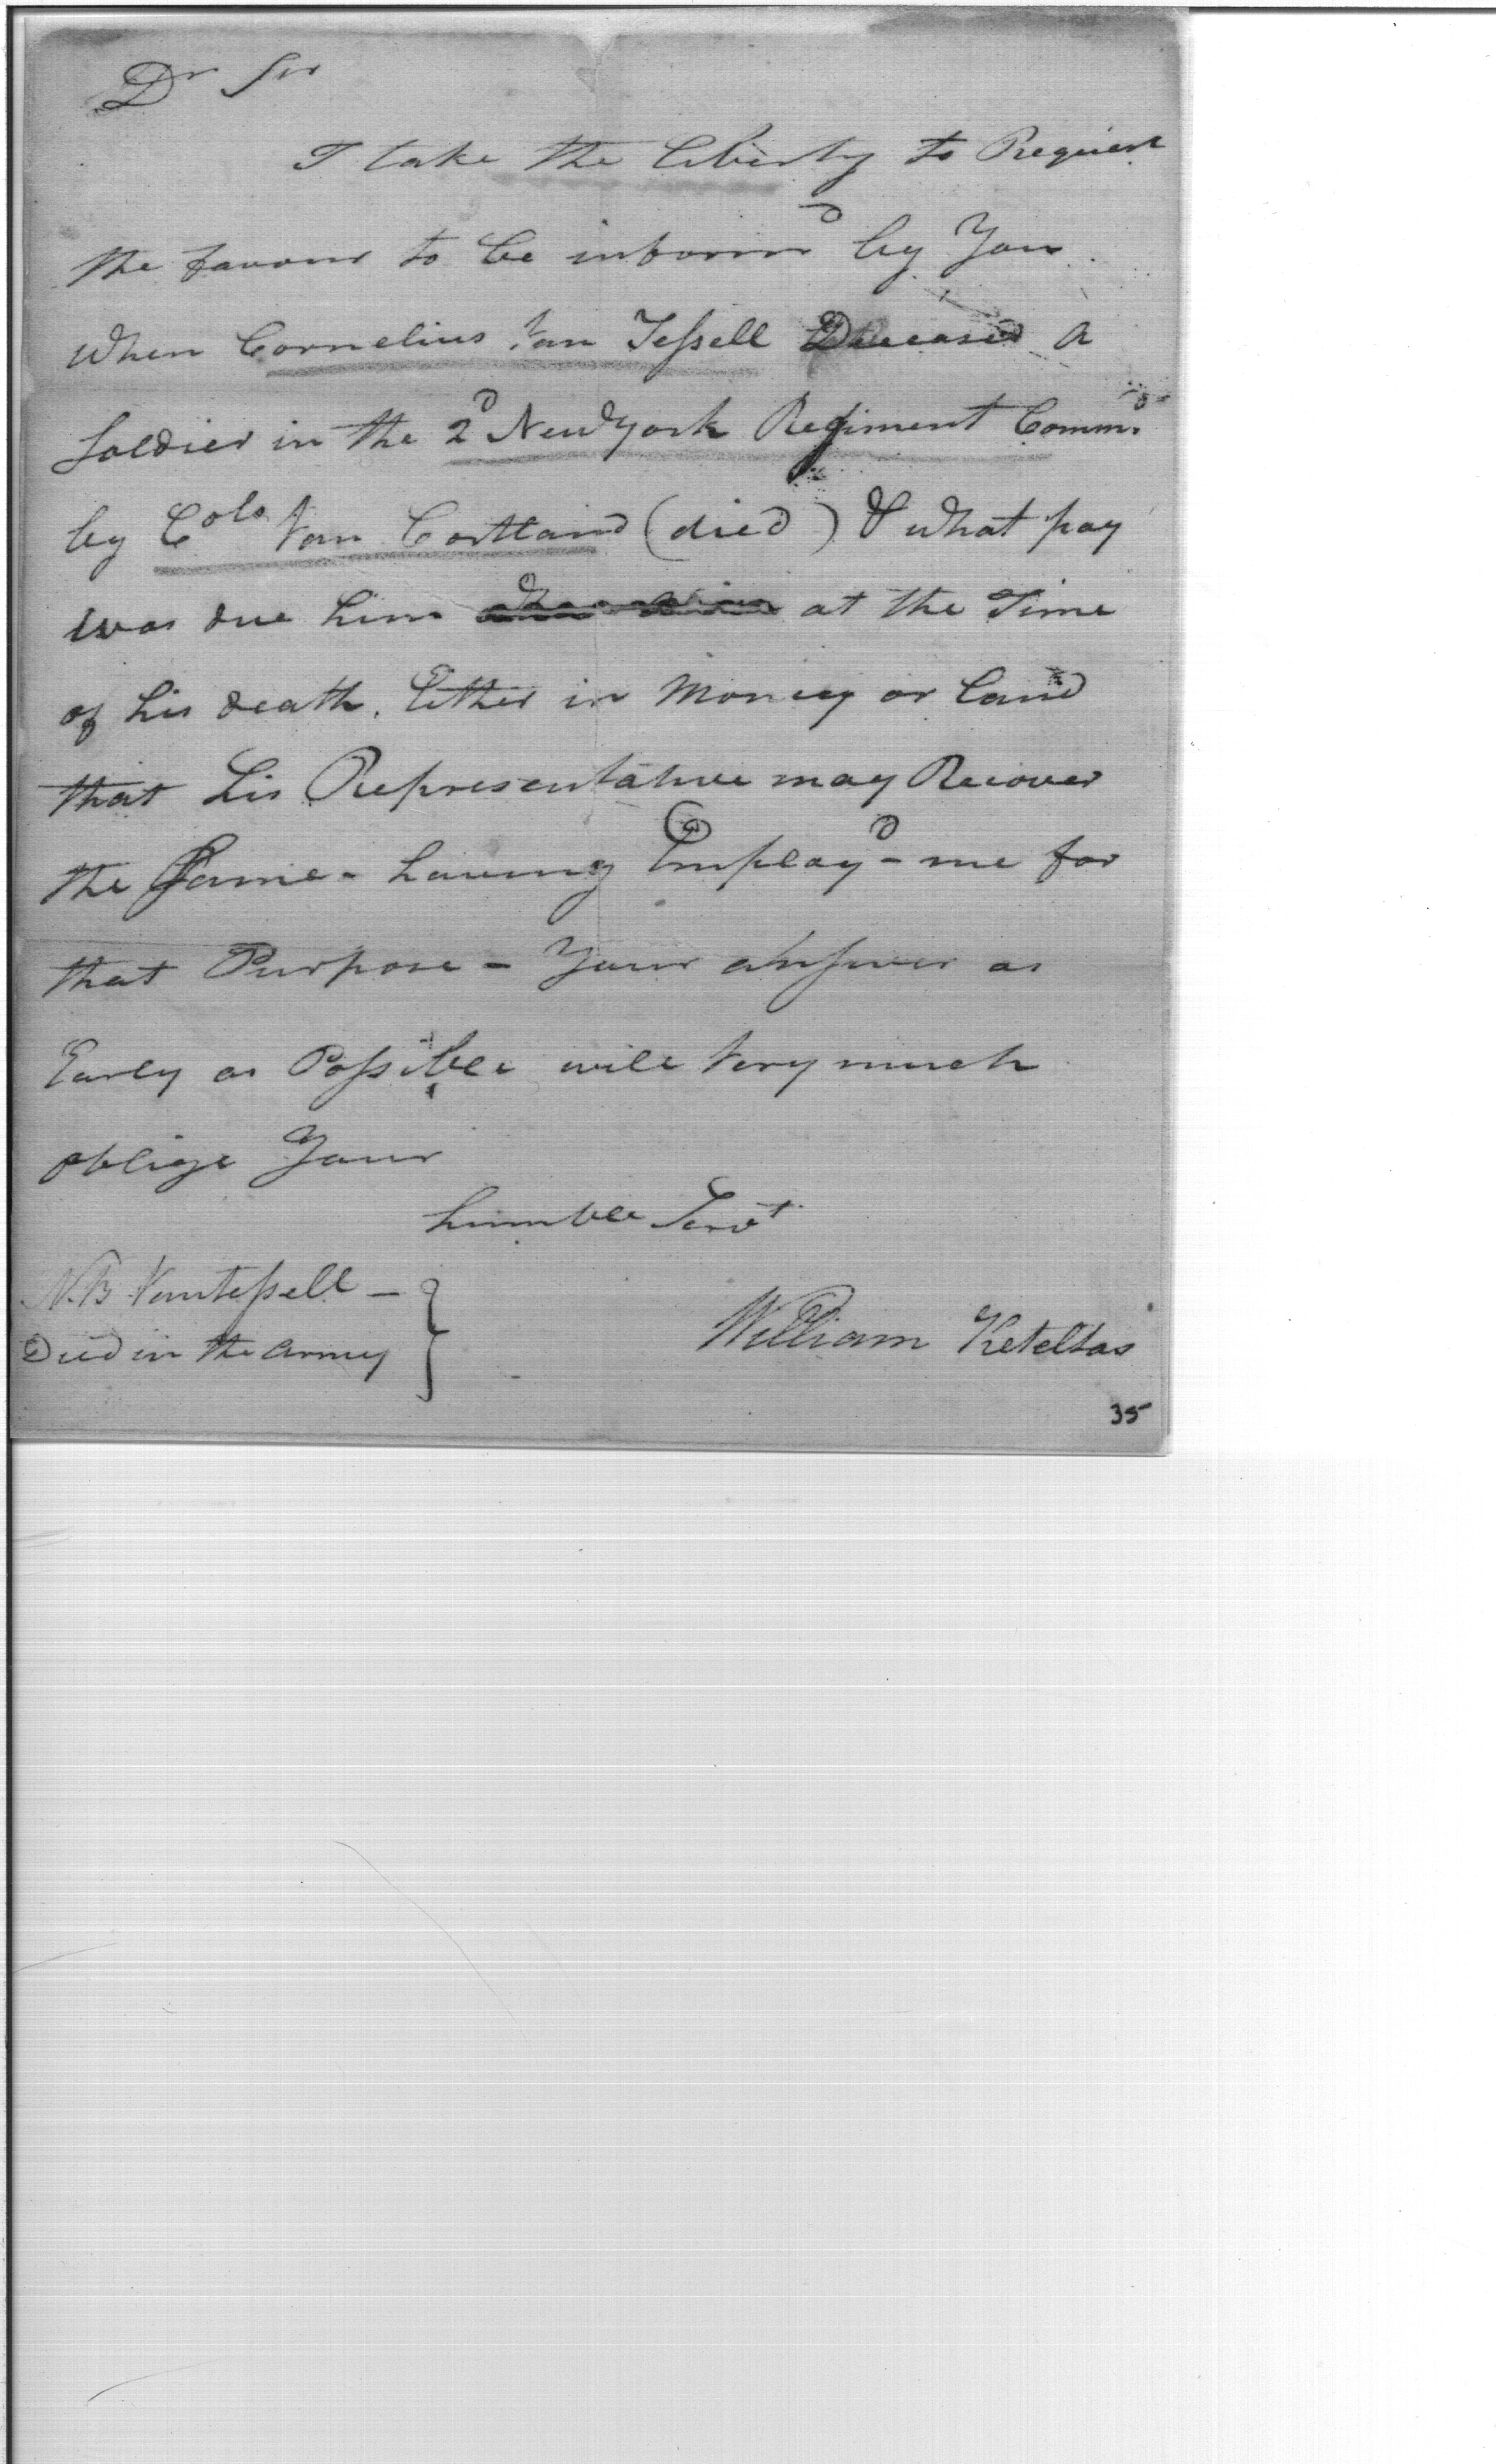 Dr Sir
I take the liberty to Request
the favour to be inform'd by You
When Cornelius Van Teſsell Deceased A
Soldier in the 2d New York Regiment Commd
by Colo Van Cortland (died) & what pay
was due him at the Time
of his death. Either in Money or land
that his Representative may Recover
the Same - having Employ'd - me for
that Purpose - Your anſwer as
Early as Poſsible will Very much
oblige Your
humble Servt
N.B Vanteſsell -
Died in the Army
William Keteltas
35